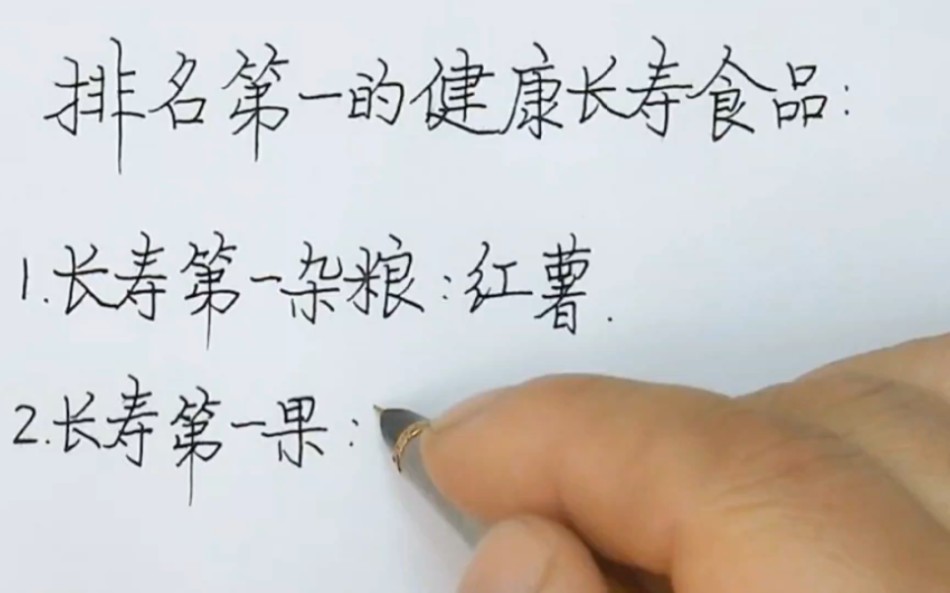 排名第一的健康长寿食品:
1.长寿第一杂粮:红薯.
2.长寿第一果: